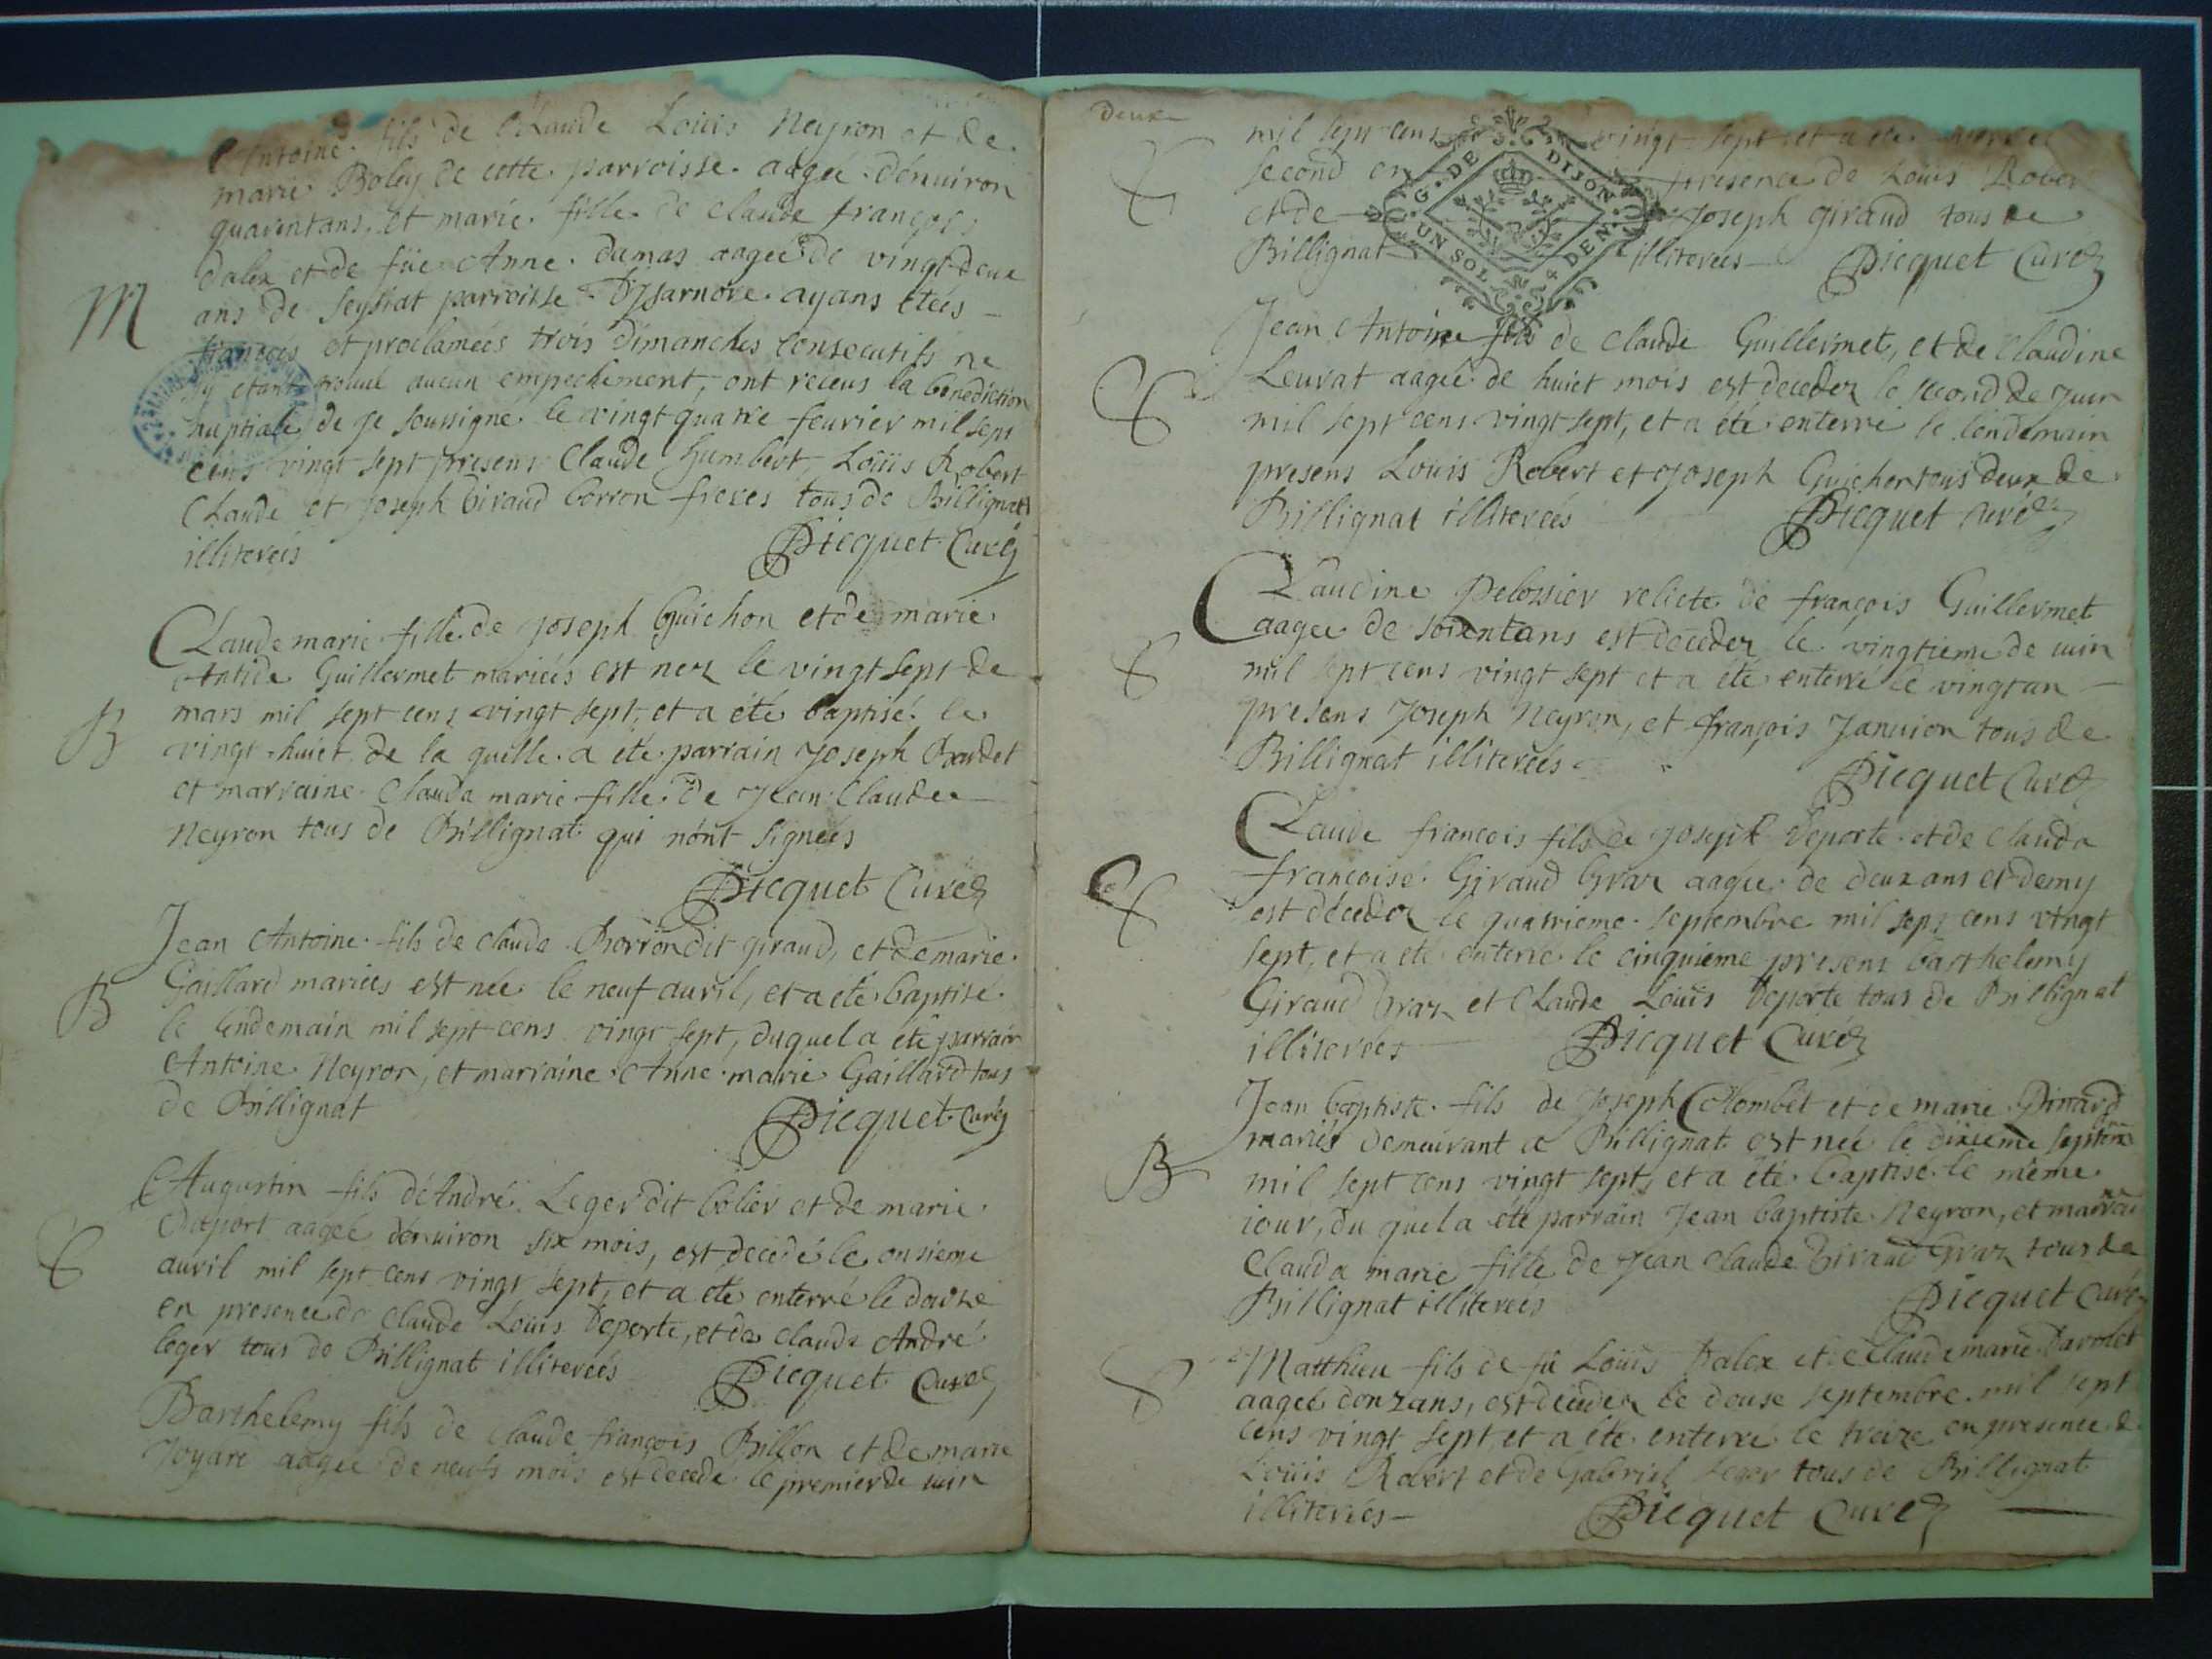 Antoine fils de Claude Loüis Neyron et de
marie Boley de cette parroisse aagée d'enuiron
quarentans, et marie fille de claude françois
dalex et de füe Anne dumas aagée de vingt deux
ans de Seyssiat parroisse D'Jsarnore ayans étées
M
fiancéés et proclaméés trois dimanches consecutifs ne
sy etant trouué aucun empechement, ont receus la benediction
nuptiale de je soussigné le vingt quatre feurier mil sept
cens vingt sept presens Claude humbert, Loüis Robert
Claude et Joseph Giraud borron freres tous de Billignat
illiterées Picquet Curé
Claude marie fille de Joseph Guichon et de marie
Antide Guillermet mariéés est nez le vingt sept de
mars mil sept cens vingt sept, et a été baptisé le
B
vingt huiet de la quelle a été parrain Joseph Baudet
et marraine Clauda marie fille de Jean Claude
Neyron tous de Billignat qui n'ont signéés
Picquet Curé
Jean Antoine fils de claude Borron dit giraud, et de marie
Gaillard mariéés est née le neuf auril, et a été baptisé
B
le lendemain mil sept cens vingt sept, duquel a été parrain
Antoine Neyron, et marraine Anne marie Gaillard tous
de Billignat Picquet Curé
Augustin fils d'André Leger dit bolier et de marie
Duport aagéé d'enuiron six mois, est decedé le onsieme
auril mil sept cens vingt sept, et a été enterré le douze
en presence de Claude Loüis Deporte, et de claude André
leger tous de Billignat illiterées Picquet Curé
Barthelemy fils de Claude françois Billon et de marie
Joyard aagéé de neufs mois est decedé le premier de iuin
deux
mil sept cens vingt sept et a été enterré
second en presence de Loüis Robert
et de Joseph giraud tous de
Billignat illiterées Picquet Curé
G. DE DIJON
UN SOL 4 DEN.
Jean Antoine fils de claude Guillermet, et de Claudine
Leurat aagéé de huiet mois est decedez le second de Juin
mil sept cens vingt sept, et a été enterré le lendemain
presens Loüis Robert et Joseph Guichon tous deux de
Billignat illiterées Picquet curé
Claudine Pelossier relicte de françois Guillermet
aagée de soixentans est decedez le vingtieme de iuin
mil sept cens vingt sept et a été enterré le vingt un
presens Joseph Neyron, et françois Januion tous de
Billignat illiterées
Picquet Curé
Claude francois fils de Joseph Deporte et de Clauda
françoise Giraud Graz aagée de deux ans et demy
est décedez le quatrieme septembre mil sept cens vingt
sept, et a été enterré le cinquieme presens barthelemy
Giraud Graz et Claude Loüis Deporte tous de Billignat
illiterées Picquet Curé
Jean baptiste fils de Joseph Colombet et de marie Pinard
mariés demeurant a Billignat est née le dixieme septem
B
mil sept cens vingt sept, et a été baptisé le même
iour, du quel a été parrain Jean baptiste Neyron, et marraine
Clauda marie fille de Jean Claude Giraud Graz tous de
Billignat illiterées Picquet Curé
Matthieu fils de fü Loüis Dalex et de Claude marie
aagéé d'onzans, est decedez le douse septembre mil sept
cens vingt sept et a été enterré le treize en presence de
Loüis Robert et de Gabriel Leger tous de Billignat
illiterées Picquet Curé